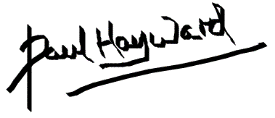 Paul Hayward